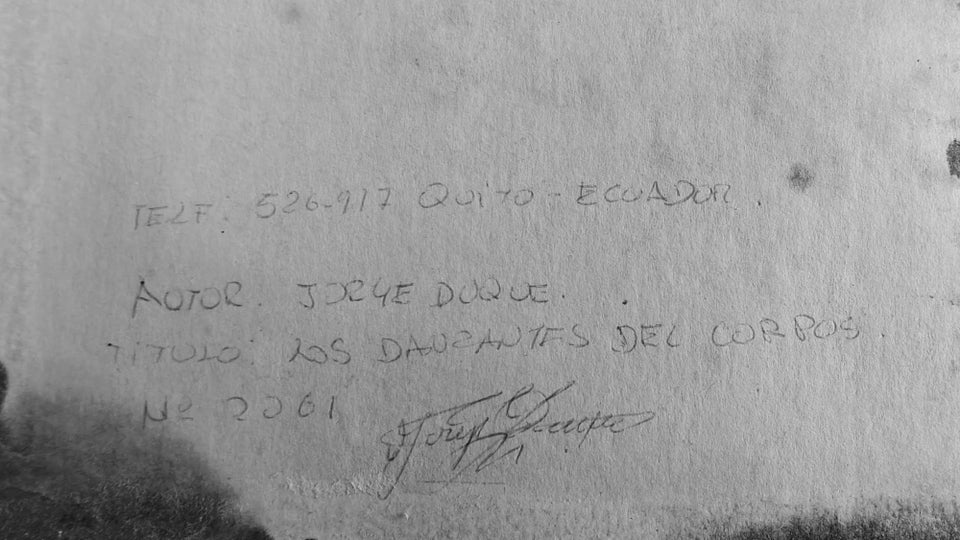 TELF: 526-917 QUITO - ECUADOR.
AUTOR. JORGE DUQUE.
TITULO: LOS DANZANTES DEL CORPUS.
Nº 2061
Jorge Duque